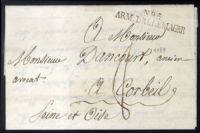 N°. 5
ARM. D'ALLEMAGNE
A Monsieur
Monsieur Dancourt, ancien
avocat
A Corbeil
Seine et Oise